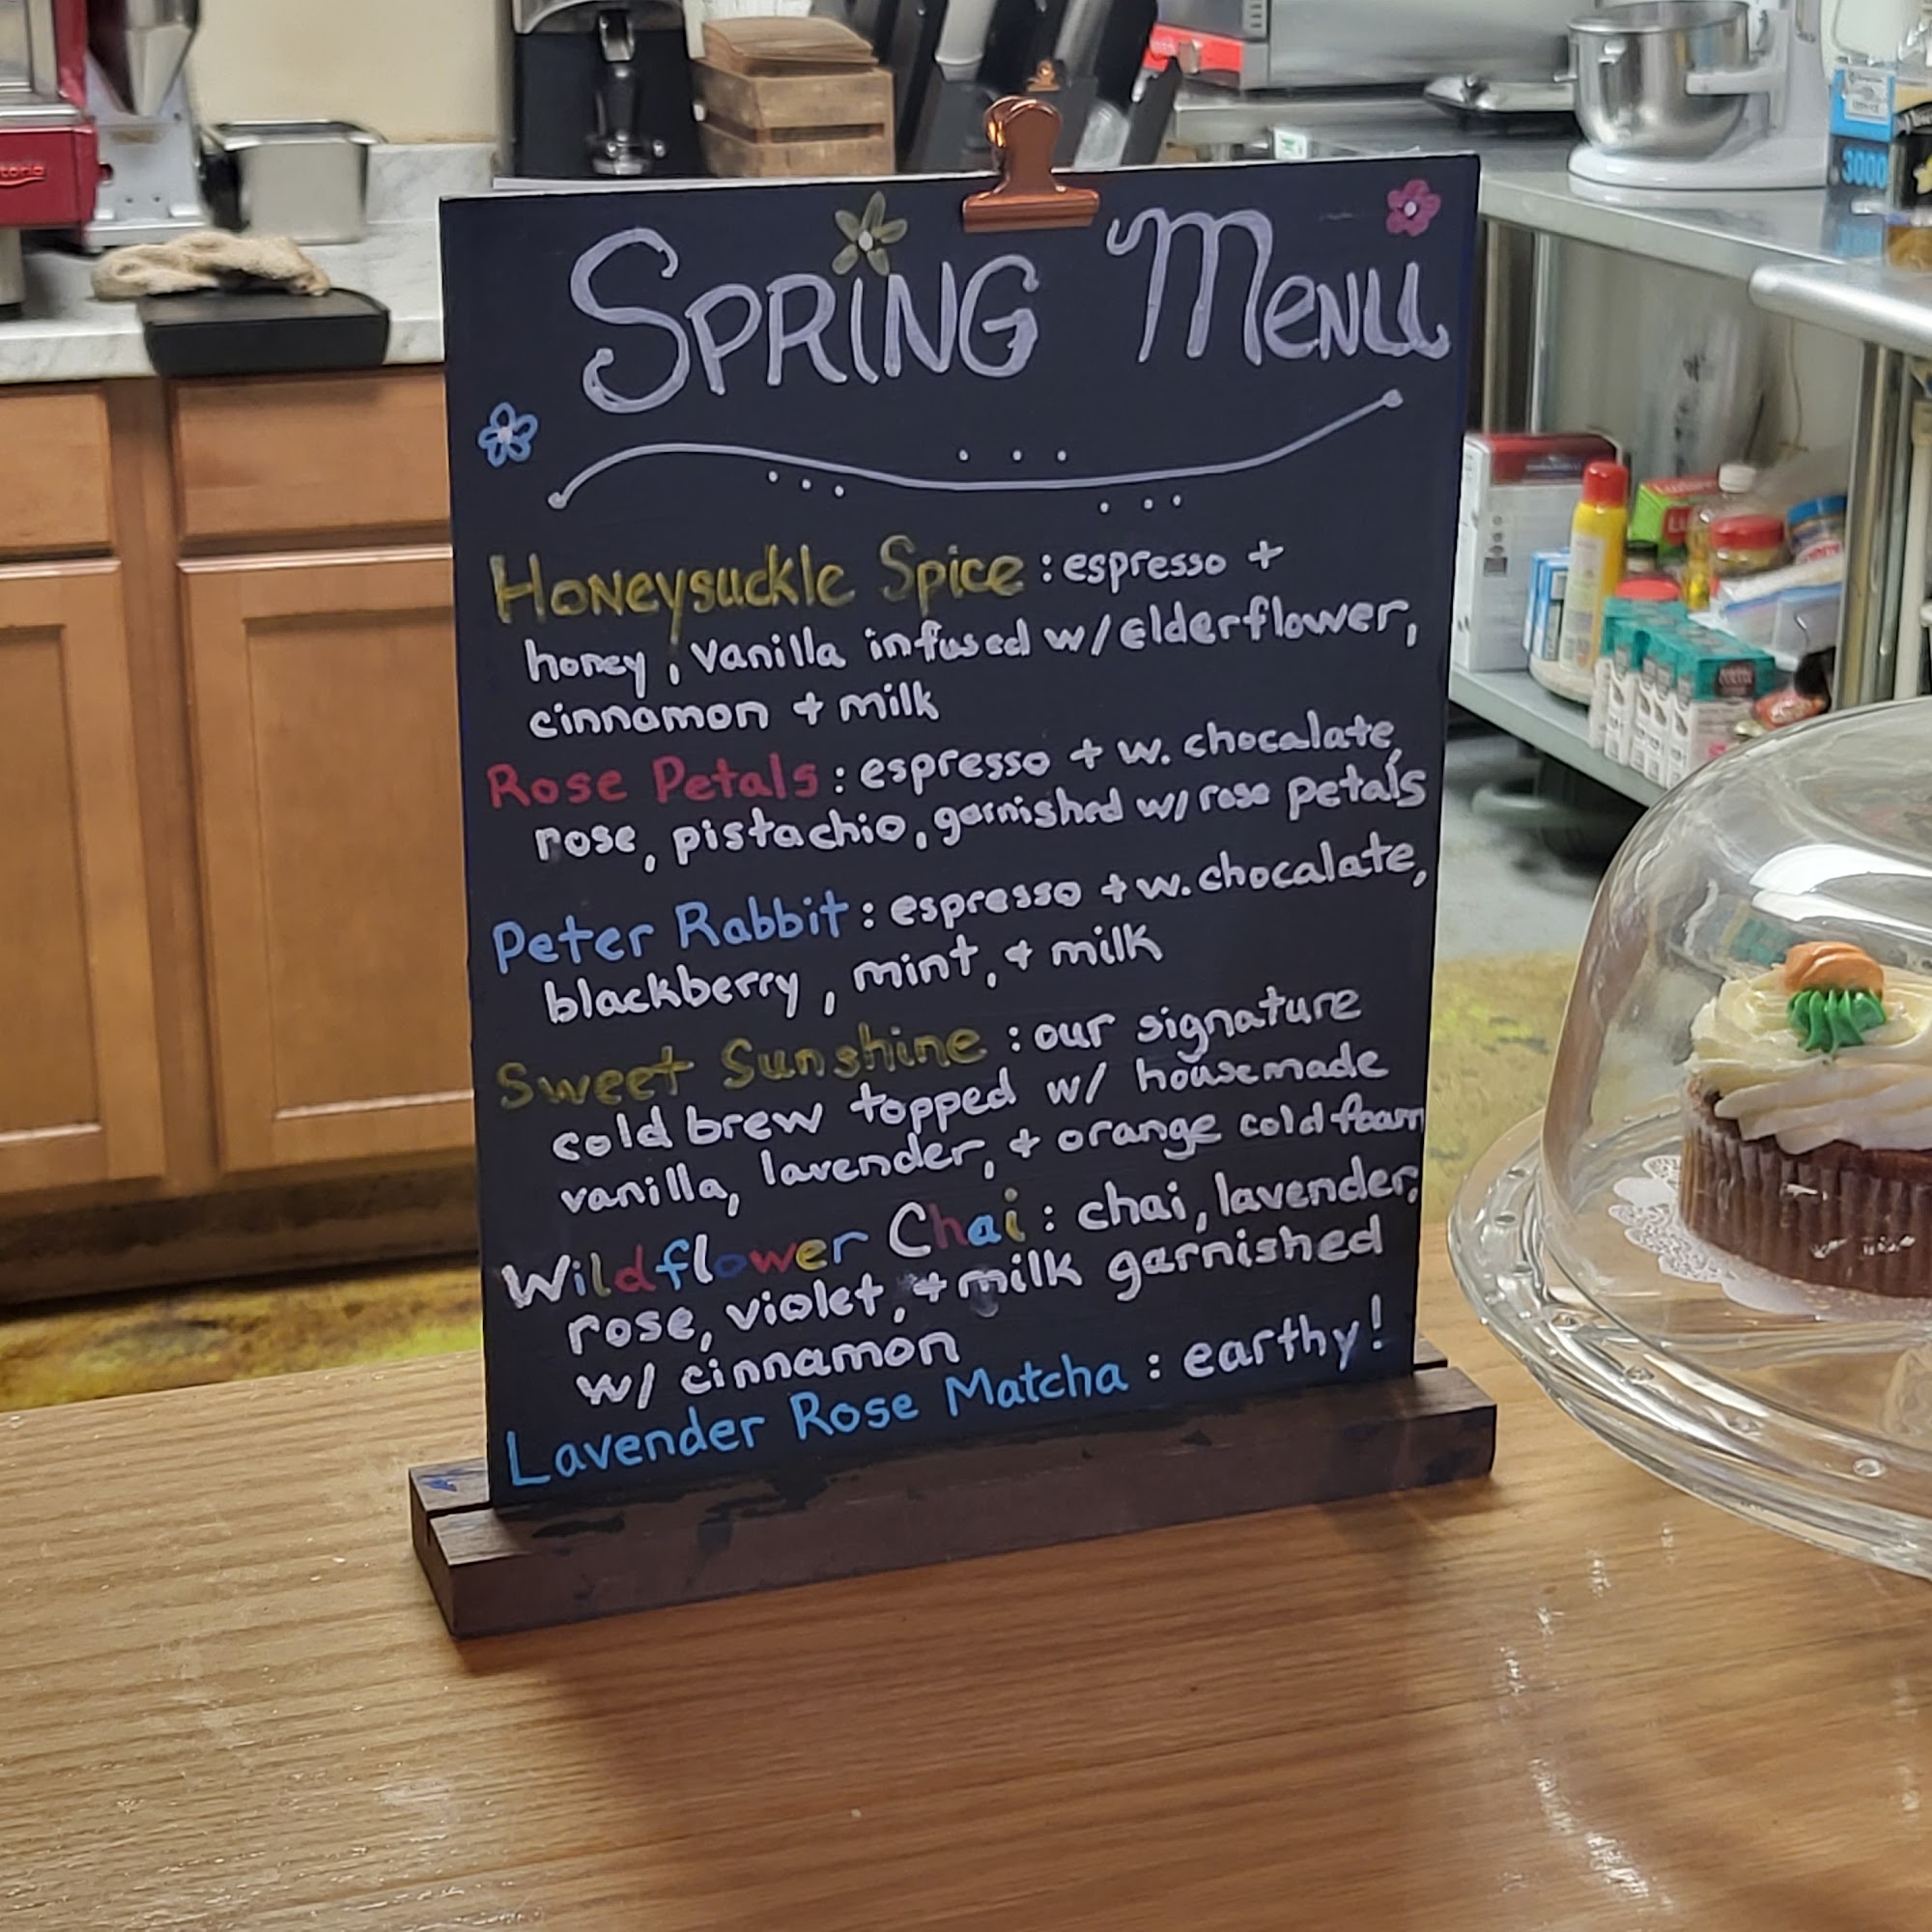 Spring Menu
Honeysuckle Spice : espresso +
honey, vanilla infused w/ Elderflower,
cinnamon + milk
Rose Petals : espresso + w. chocalate,
rose, pistachio, garnished w/ rose petals
Peter Rabbit : espresso + w. chocalate,
blackberry, mint, + milk
Sweet Sunshine : our signature
cold brew topped w/ housemade
vanilla, lavender, + orange cold foam
Wildflower Chai : chai, lavender,
rose, violet, + milk garnished
w/ cinnamon
Lavender Rose Matcha : earthy!
3000